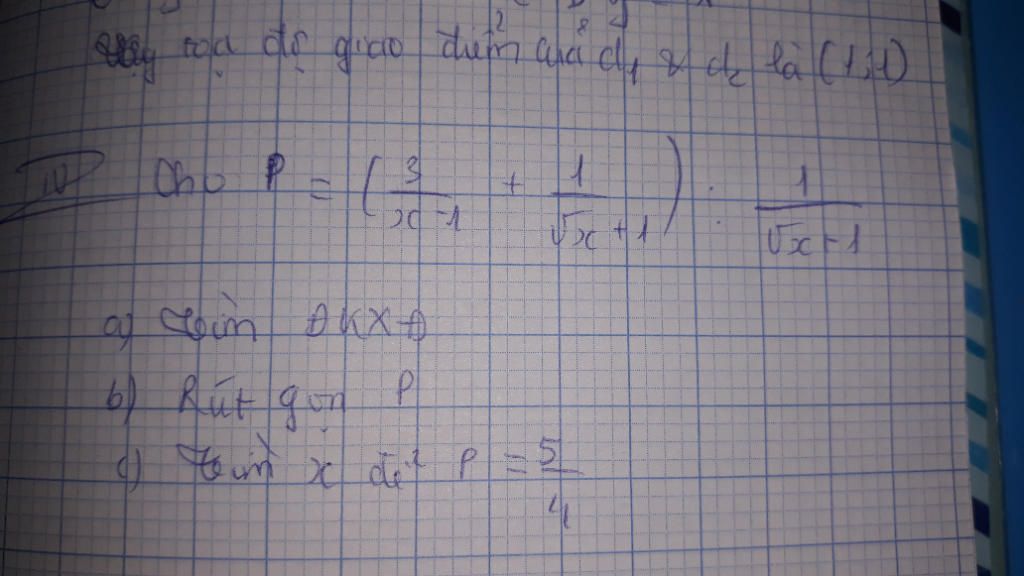 Vậy toạ độ giao điểm của d₁ & d₂ là (1;1)
IV Cho P = (3/(x-1) + 1/(√x+1)) : 1/(√x-1)
a) Tìm ĐKXĐ
b) Rút gọn P
c) Tìm x để P = 5/4